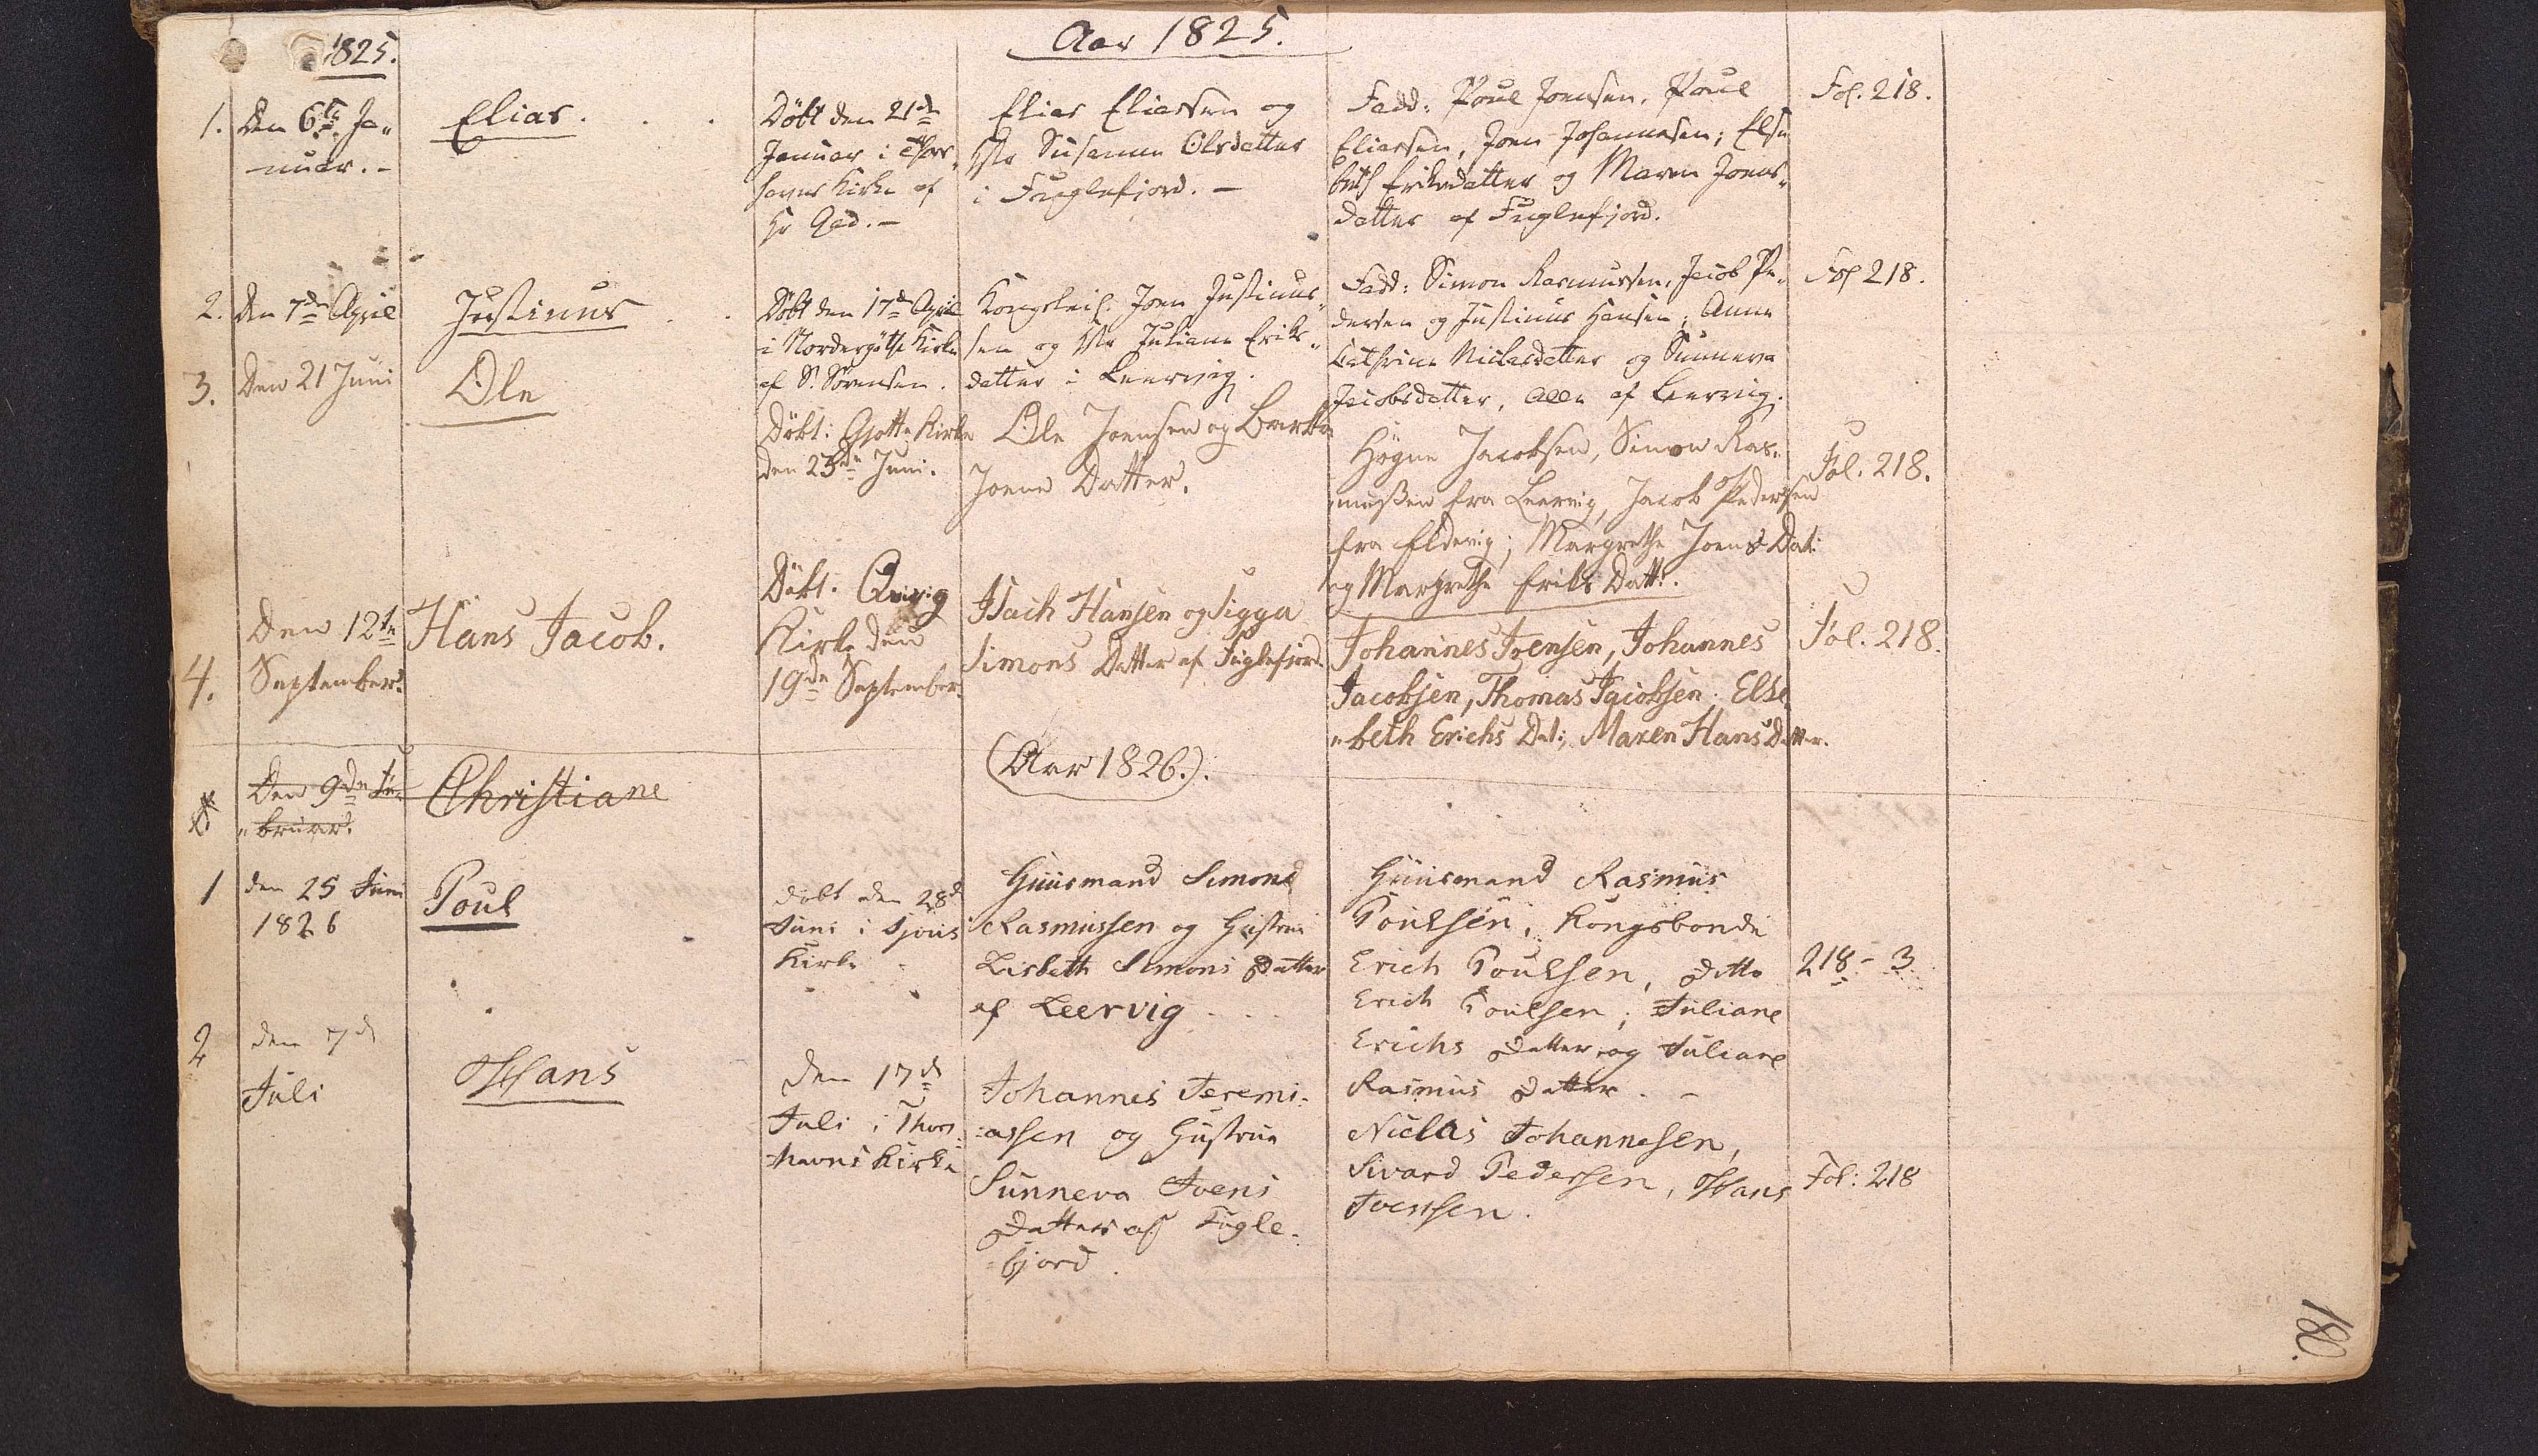 1825.
Aar 1825.
1.
Den 6te Ja„
nuar.-
Elias.
Döbt den 21de
Januar i Thors„
havns Kirke af
Hr Gad.-
Elias Eliassen og
Hr Susanne Olsdatter
i Fuglefjord.-
Fadd: Poul Joensen, Poul
Eliassen, Joen Johannesen; Else
beth Eriksdatter og Maren Joens„
datter af Fuglefjord.
Fol. 218.
2.
Den 7de April
Justinus
Döbt den 17de April
i Nordergöthe Kirke
af S. Sörensen.
Kongsleil. Joen Justinus„
sen og Hr Juliane Eriks„
datter i Leervig.
Fadd: Simon Rasmussen, Jacob Pe„
dersen og Justinus Hansen; Anne
Cathrine Niclasdatter og Sunneva
Jacobsdatter, alle af Leervig.
Fol 218.
3.
Den 21 Juni
Ole
Döbt: Gjotte Kirke
den 23de Juni.
Ole Joensen og
Joens Datter.
Högne Jacobsen, Simon Ras„
mussen fra Leervig, Jacob Pedersen
fra Eldevig; Margrethe Joens Dat:
og Margrethe Eriks Datt:.
Fol. 218.
4.
Den 12te
September.
Hans Jacob.
Döbt. Qvivig
Kirke den
19de September.
Isach Hansen og Sigga
Simons Datter af Fuglefjord.
Johannes Joensen, Johannes
Jacobsen, Thomas Jacobsen. Else
„beth Erichs Dat:, Maren Hans Datter.
Fol. 218.
(Aar 1826.).
Den 9de Fe
„bruar.
Christiane
1
den 25 Juni
1826
Poul
döbt den 28d
Juni i Sjous
Kirke
Huusmand Simon
Rasmussen og Hustrue
Lisbeth Simons Datter
af Leervig...
Huusmand Rasmus
Poulsen, Kongsbonde
Erich Poulsen, Ditto
Erich Poulsen; Juliane
Erichs Datter og Juliane
Rasmus Datter.-
218-3
2
den 7d
Juli
Hans
den 17d
Juli i Thors
havns Kirke
Johannes Jeremi-
-assen og Hustrue
Sunneva Joens
Datter af Fugle-
fjord
Niclas Johannesen,
Sivard Pedersen, Hans
Joensen.
Fol: 218
180.